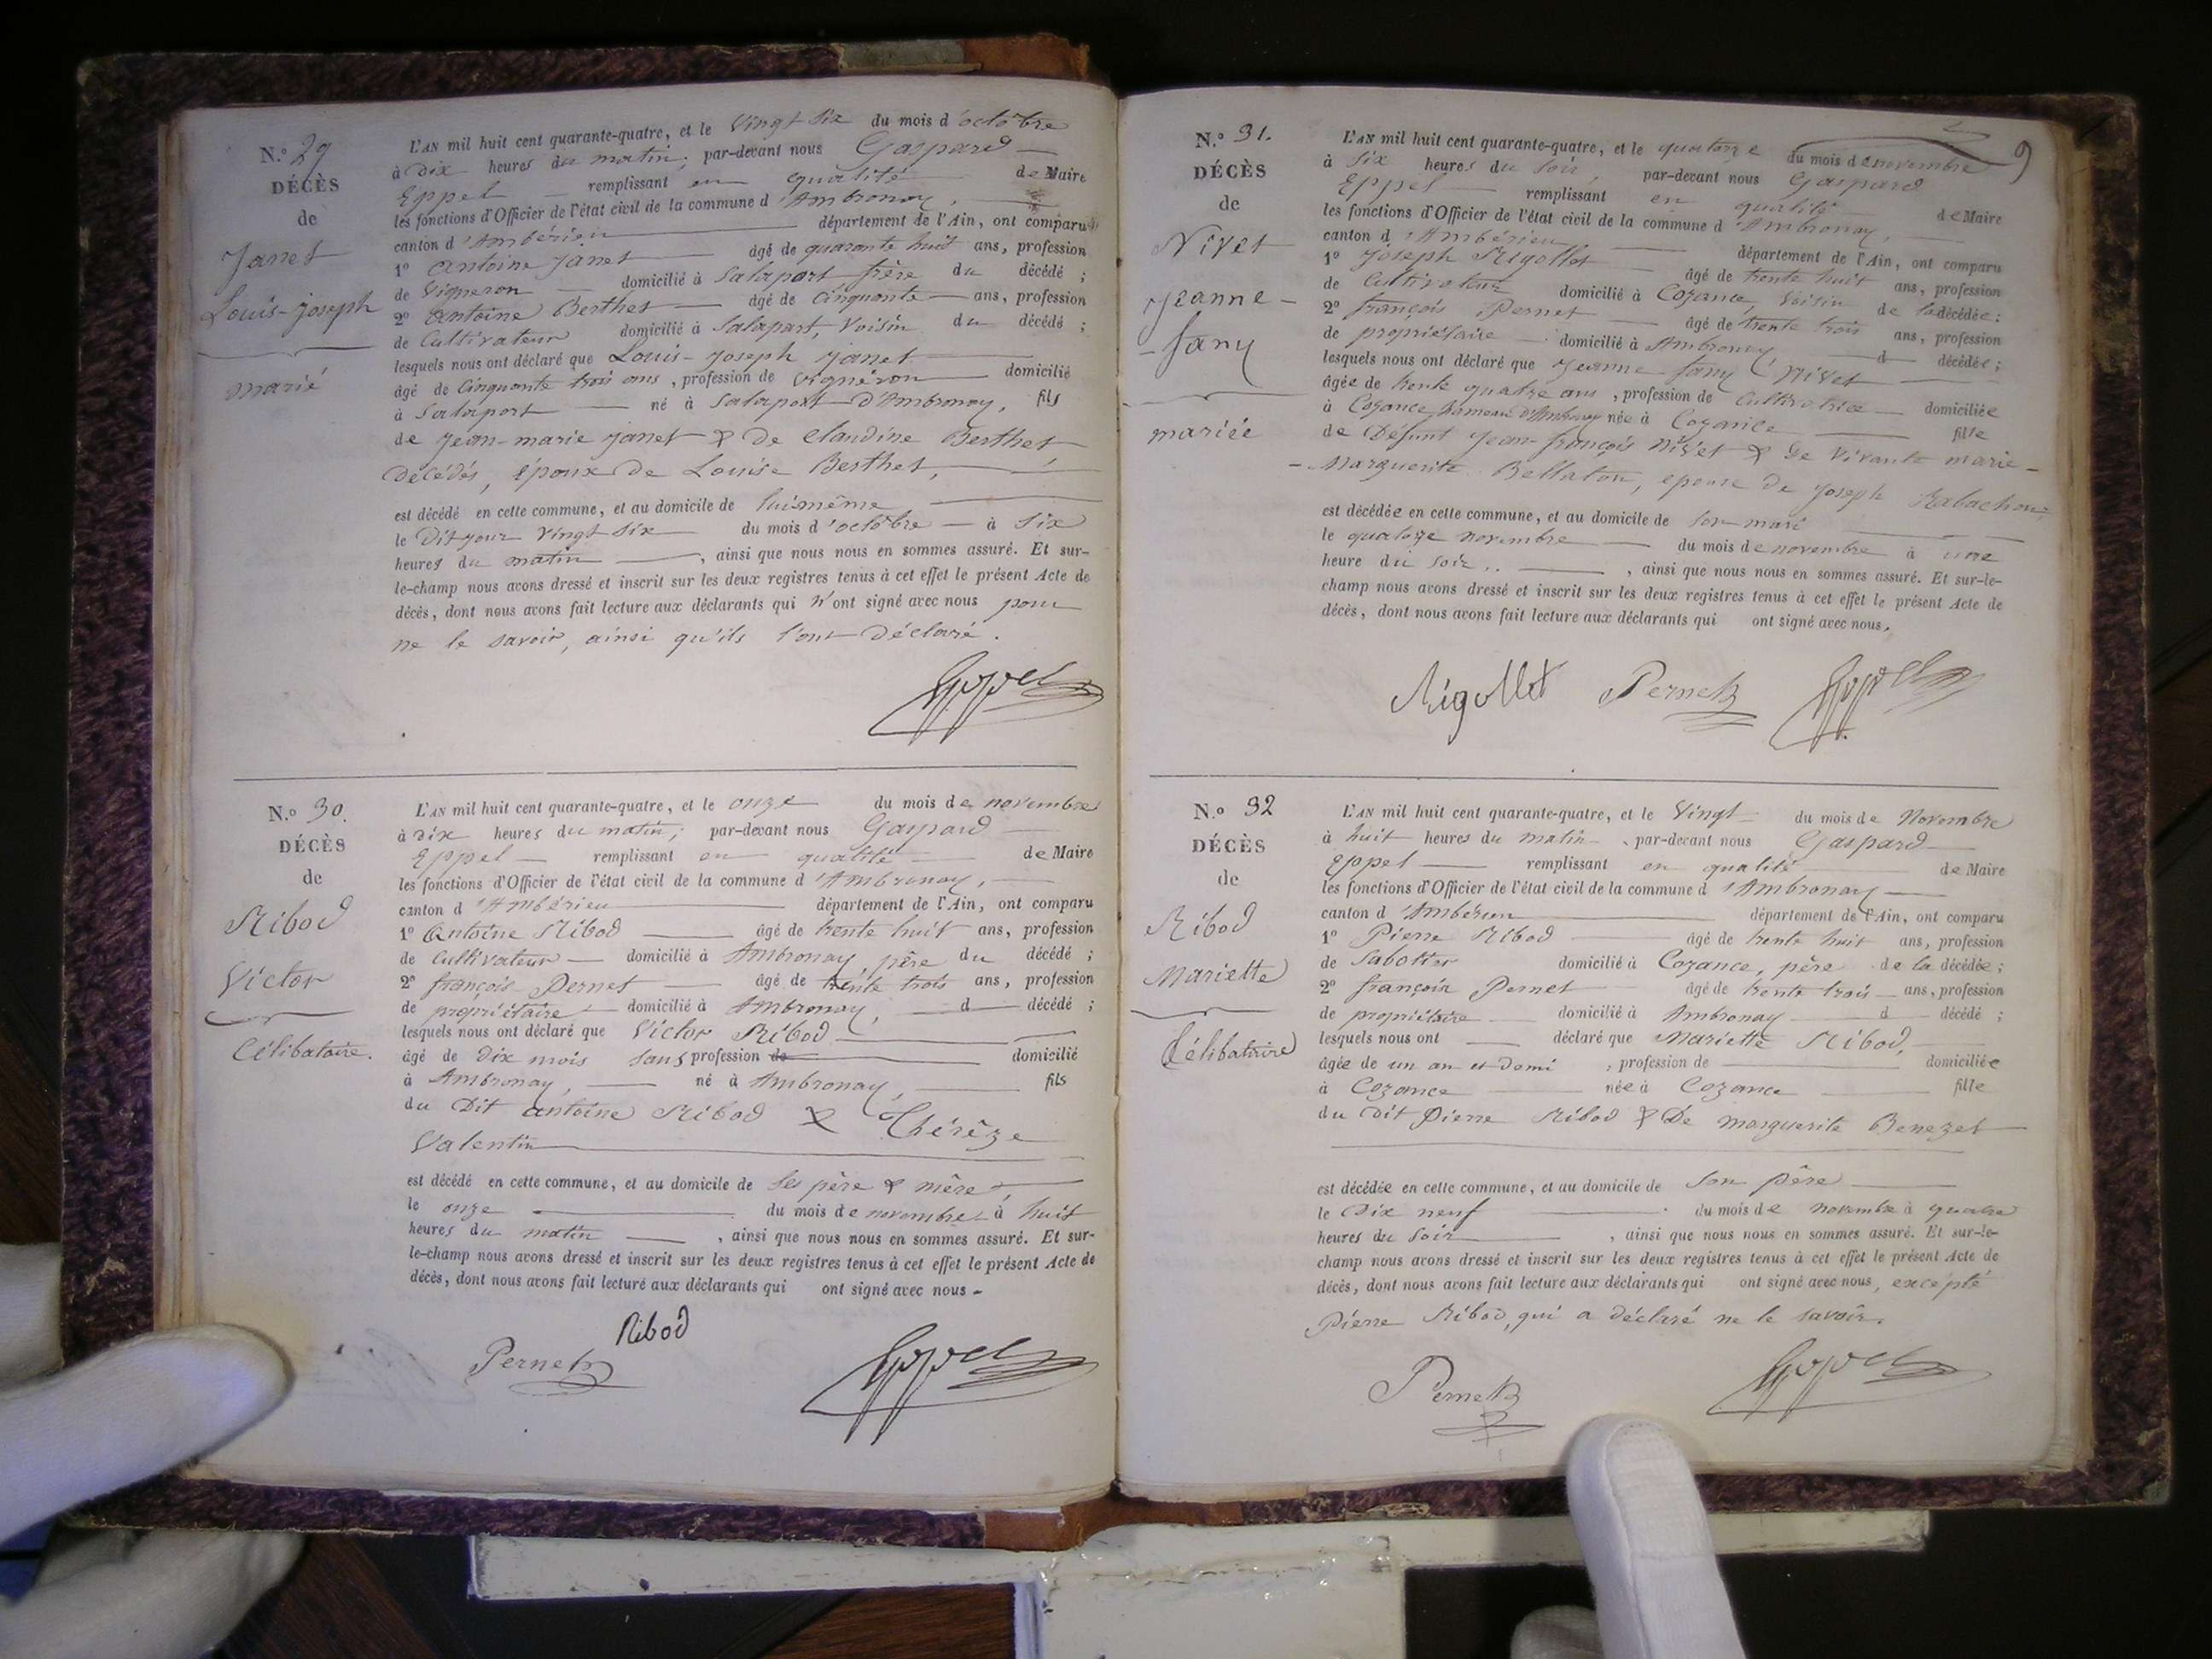 N.º 29
DÉCÈS
de
Janet
Louis-joseph
marié
L'AN mil huit cent quarante-quatre, et le Vingt Six du mois d'octobre
à Dix heures du matin; par-devant nous Gaspard
Eppel remplissant en qualité de Maire
les fonctions d'Officier de l'état civil de la commune d'Ambronay,
canton d'Ambérieu département de l'Ain, ont comparu
1º Antoine Janet âgé de quarante huit ans, profession
de Vigneron domicilié à Salaport frère du décédé;
2º Antoine Berthet âgé de Cinquante ans, profession
de Cultivateur domicilié à Salaport, Voisin du décédé;
lesquels nous ont déclaré que Louis-Joseph Janet
âgé de Cinquante trois ans, profession de vigneron domicilié
à Salaport né à Salaport d'Ambronay, fils
de Jean-marie Janet & de Claudine Berthet
Décédés, époux de Louise Berthet,
est décédé en cette commune, et au domicile de lui même
le Dit jour Vingt Six du mois d'octobre à Six
heures du matin, ainsi que nous nous en sommes assuré. Et sur-
le-champ nous avons dressé et inscrit sur les deux registres tenus à cet effet le présent Acte de
décès, dont nous avons fait lecture aux déclarants qui n'ont signé avec nous pour
ne le savoir, ainsi qu'ils l'ont Déclaré.
Eppel
N.º 30.
DÉCÈS
de
Ribod
Victor
Célibataire.
L'AN mil huit cent quarante-quatre, et le onze du mois de novembre
à Dix heures du matin; par-devant nous Gaspard
Eppel remplissant en qualité de Maire
les fonctions d'Officier de l'état civil de la commune d'Ambronay,
canton d'Ambérieu département de l'Ain, ont comparu
1º Antoine Ribod âgé de trente huit ans, profession
de Cultivateur domicilié à Ambronay père du décédé;
2º françois Pernet âgé de trente trois ans, profession
de propriétaire domicilié à Ambronay, d décédé;
lesquels nous ont déclaré que Victor Ribod
âgé de Dix mois sans profession de domicilié
à Ambronay, né à Ambronay, fils
du Dit antoine Ribod & Thérèze
Valentin
est décédé en cette commune, et au domicile de ses père & mère
le onze du mois de novembre à huit
heures du matin, ainsi que nous nous en sommes assuré. Et sur-
le-champ nous avons dressé et inscrit sur les deux registres tenus à cet effet le présent Acte de
décès, dont nous avons fait lecture aux déclarants qui ont signé avec nous
Ribod
Pernet Eppel
9
N.º 31.
DÉCÈS
de
Nivet
Jeanne-
-fany
mariée
L'AN mil huit cent quarante-quatre, et le quatorze du mois de novembre
à Six heures du soir, par-devant nous Gaspard
Eppel remplissant en qualité de Maire
les fonctions d'Officier de l'état civil de la commune d'Ambronay,
canton d'Ambérieu département de l'Ain, ont comparu
1º Joseph Rigollet âgé de trente huit ans, profession
de Cultivateur domicilié à Cozance, Voisin de la décédée;
2º françois Pernet âgé de trente trois ans, profession
de propriétaire domicilié à Ambronay, d décédée;
lesquels nous ont déclaré que Jeanne fany Nivet
âgée de trente quatre ans, profession de Cultivatrice domiciliée
à Cozance hameau d'Ambronay née à Cozance fille
de Défunt Jean-françois Nivet & de Vivante marie-
-Marguerite Bellaton, épouse de Joseph Rabachon,
est décédée en cette commune, et au domicile de son mari
le quatorze novembre du mois de novembre à une
heure du soir, ainsi que nous nous en sommes assuré. Et sur-le-
champ nous avons dressé et inscrit sur les deux registres tenus à cet effet le présent Acte de
décès, dont nous avons fait lecture aux déclarants qui ont signé avec nous.
Rigollet Pernet Eppel
N.º 32
DÉCÈS
de
Ribod
Mariette
Célibataire
L'AN mil huit cent quarante-quatre, et le Vingt du mois de Novembre
à huit heures du matin, par-devant nous Gaspard
Eppel remplissant en qualité de Maire
les fonctions d'Officier de l'état civil de la commune d'Ambronay
canton d'Ambérieu département de l'Ain, ont comparu
1º Pierre Ribod âgé de trente huit ans, profession
de Sabotier domicilié à Cozance, père de la décédée;
2º françois Pernet âgé de trente trois ans, profession
de propriétaire domicilié à Ambronay d décédé;
lesquels nous ont déclaré que Mariette Ribod,
âgée de un an et demi, profession de domiciliée
à Cozance née à Cozance fille
du Dit Pierre Ribod & De marguerite Benezet
est décédée en cette commune, et au domicile de son père
le Dix neuf du mois de novembre à quatre
heures du Soir, ainsi que nous nous en sommes assuré. Et sur-le-
champ nous avons dressé et inscrit sur les deux registres tenus à cet effet le présent Acte de
décès, dont nous avons fait lecture aux déclarants qui ont signé avec nous, excepté
Pierre Ribod, qui a déclaré ne le savoir.
Pernet Eppel